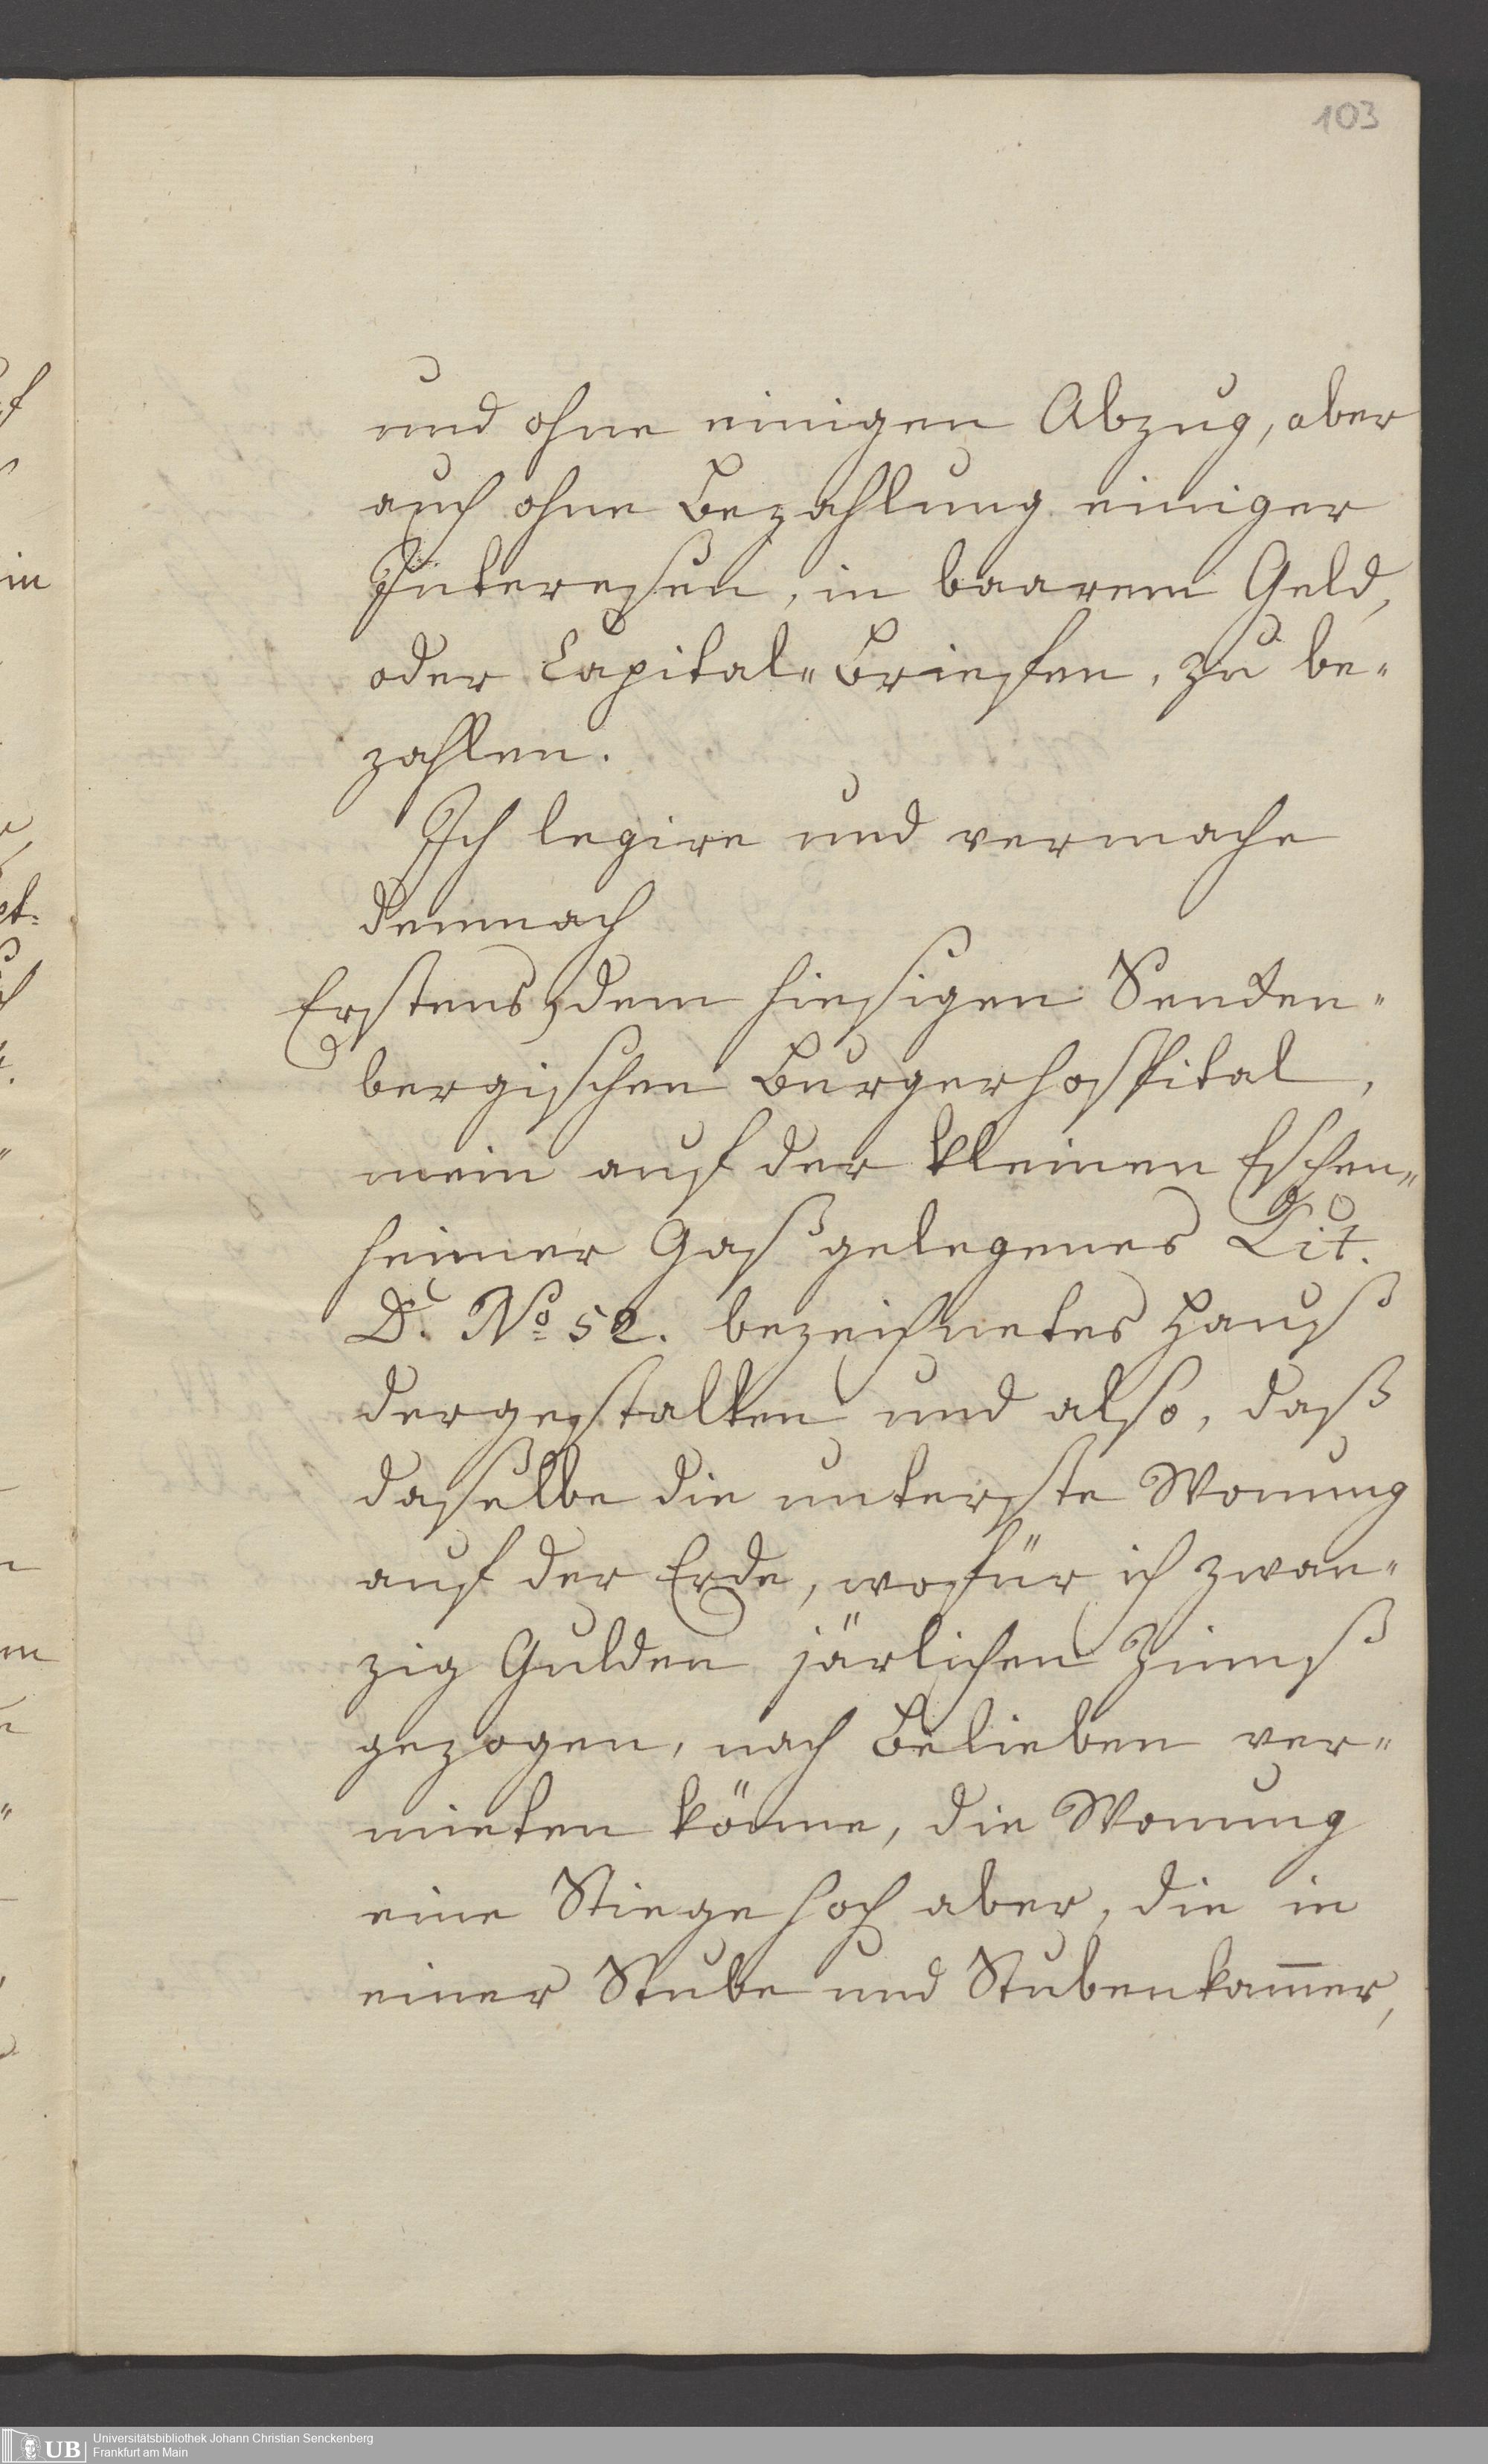 103
und ohne einigen Abzug, aber
auch ohne Bezahlung einiger
Interessen, in baarem Geld,
oder Capital-Briefen, zu be-
zahlen.
Ich legire und vermache
demnach
Erstens, dem hiesigen Senken-
bergischen Burgerhospital,
mein auf der kleinen Eschen-
heimer Gaß gelegenes Lit.
D. No 52. bezeichnetes Hauß
dergestalten und also, daß
dasselbe die unterste Wonung
auf der Erde, wofür ich zwan-
zig Gulden järlichen Zinnß
gezogen, nach Belieben ver-
mieten könne, die Wonung
eine Stiege hoch aber, die in
einer Stube und Stubenkam̅er,
UB
Universitätsbibliothek Johann Christian Senckenberg
Frankfurt am Main